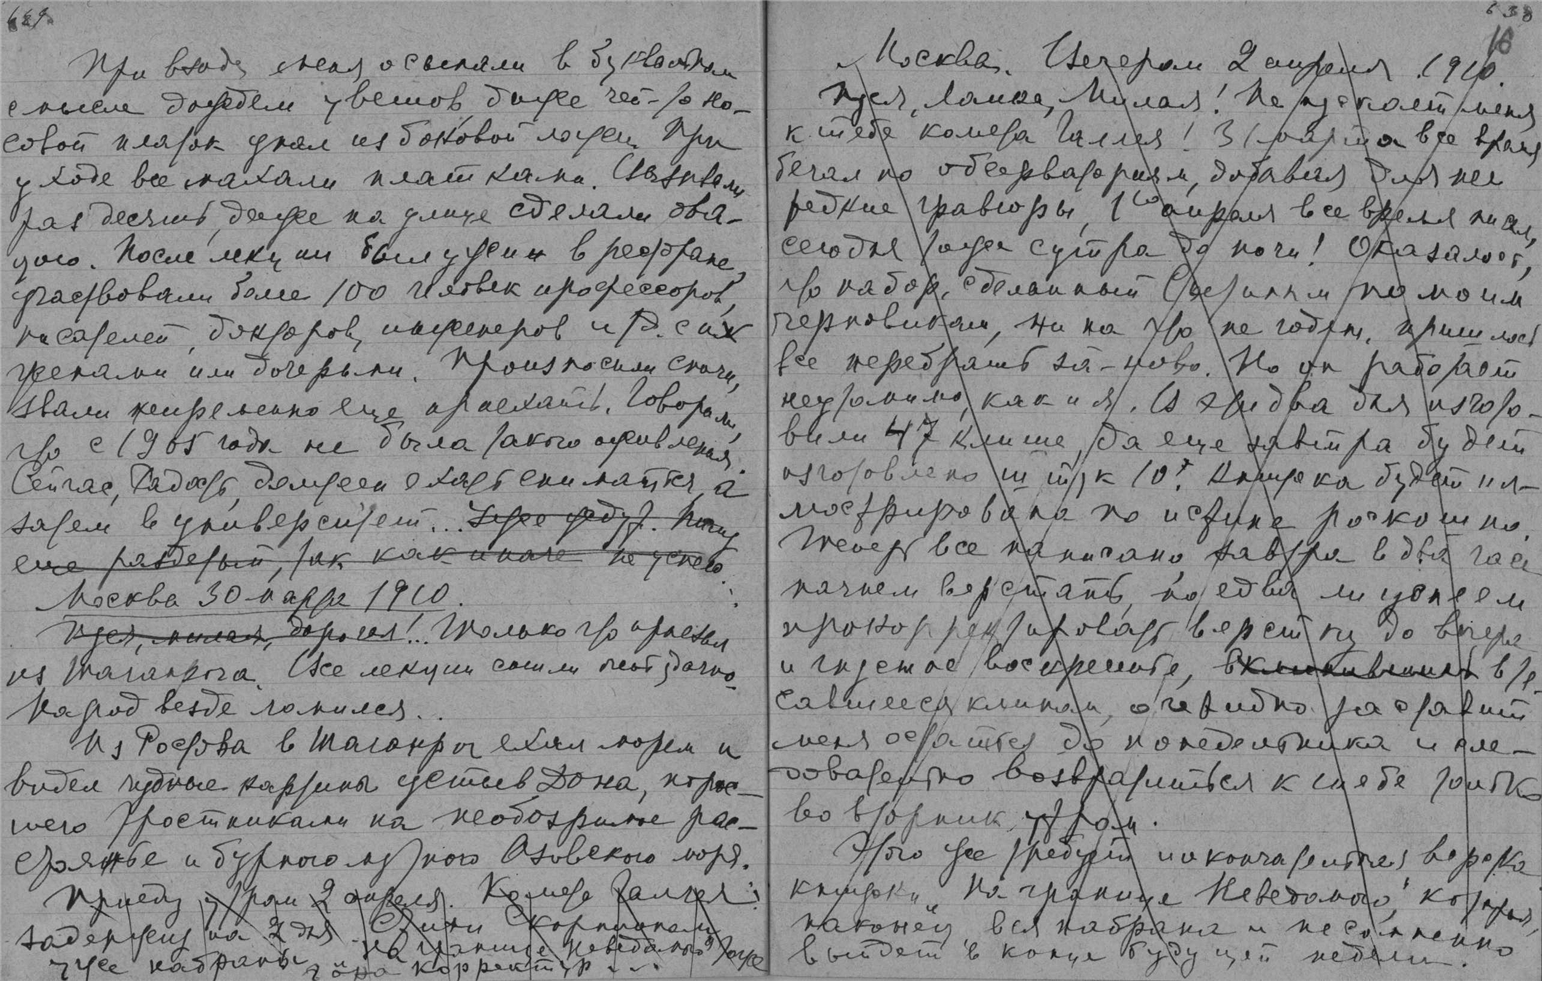 При входе меня осыпали в буквальном
смысле дождем цветов, даже чей-то но-
совой платок упал из боковой ложи. При
уходе все махали платками. Вызывали
раз десять, даже на улице сделали ова-
цию. После лекции был ужин в ресторане,
участвовали более 100 человек профессоров,
писателей, докторов, инженеров и т.д. с их
женами или дочерьми. Произносили спичи,
звали непременно еще приехать. Говорили,
что с 1905 года не было такого оживления.
Сейчас, Радость, должен ехать сниматься, а
затем в университет... уже ждут. Пишу
еще раздетый, так как иначе не успею.
Москва 30 марта 1910.
Пуся, милая, дорогая!.. Только что приехал
из Таганрога. Все лекции сошли удачно.
Народ везде ломился...
Из Ростова в Таганрог ехал морем и
видел чудные картины устьев Дона, порос-
шего тростниками на необозримое рас-
стоянье и бурного мутного Азовского моря.
Приеду утром 2 апреля. Комета Галлея
задержит на 2 дня.
уже набраны корректур...
638
16
Москва. Вечером 2 апреля 1910.
Пуся, Лапка, Милая! Не пускает меня
к тебе комета Галлея! 31 марта все время
бегал по обсерваториям, добывая для нея
редкие гравюры, 1го апреля все время писал,
сегодня тоже с утра до ночи! Оказалось,
что набор, сделанный по моим
черновикам, ни на что не годен, пришлось
все перебрать за-ново. Но он работает
неутомимо, как и я. В эти два дня изгото-
вили 47 клише, да еще завтра будет
изготовлено штук 10. Книжка будет ил-
люстрирована по истине роскошно.
Теперь все написано, завтра в два часа
начнем верстать, но едва ли успеем
прокорректировать верстку до вечера
и гнусное воскресенье, вклинившись вре-
савшееся клином, очевидно заставит
меня остаться до понедельника и сле-
довательно возвратиться к тебе только
во вторник утром.
Этого же требует и окончательная верстка
книжки "На границе Неведомого", которая,
наконец вся набрана и несомненно
выйдет в конце будущей недели.